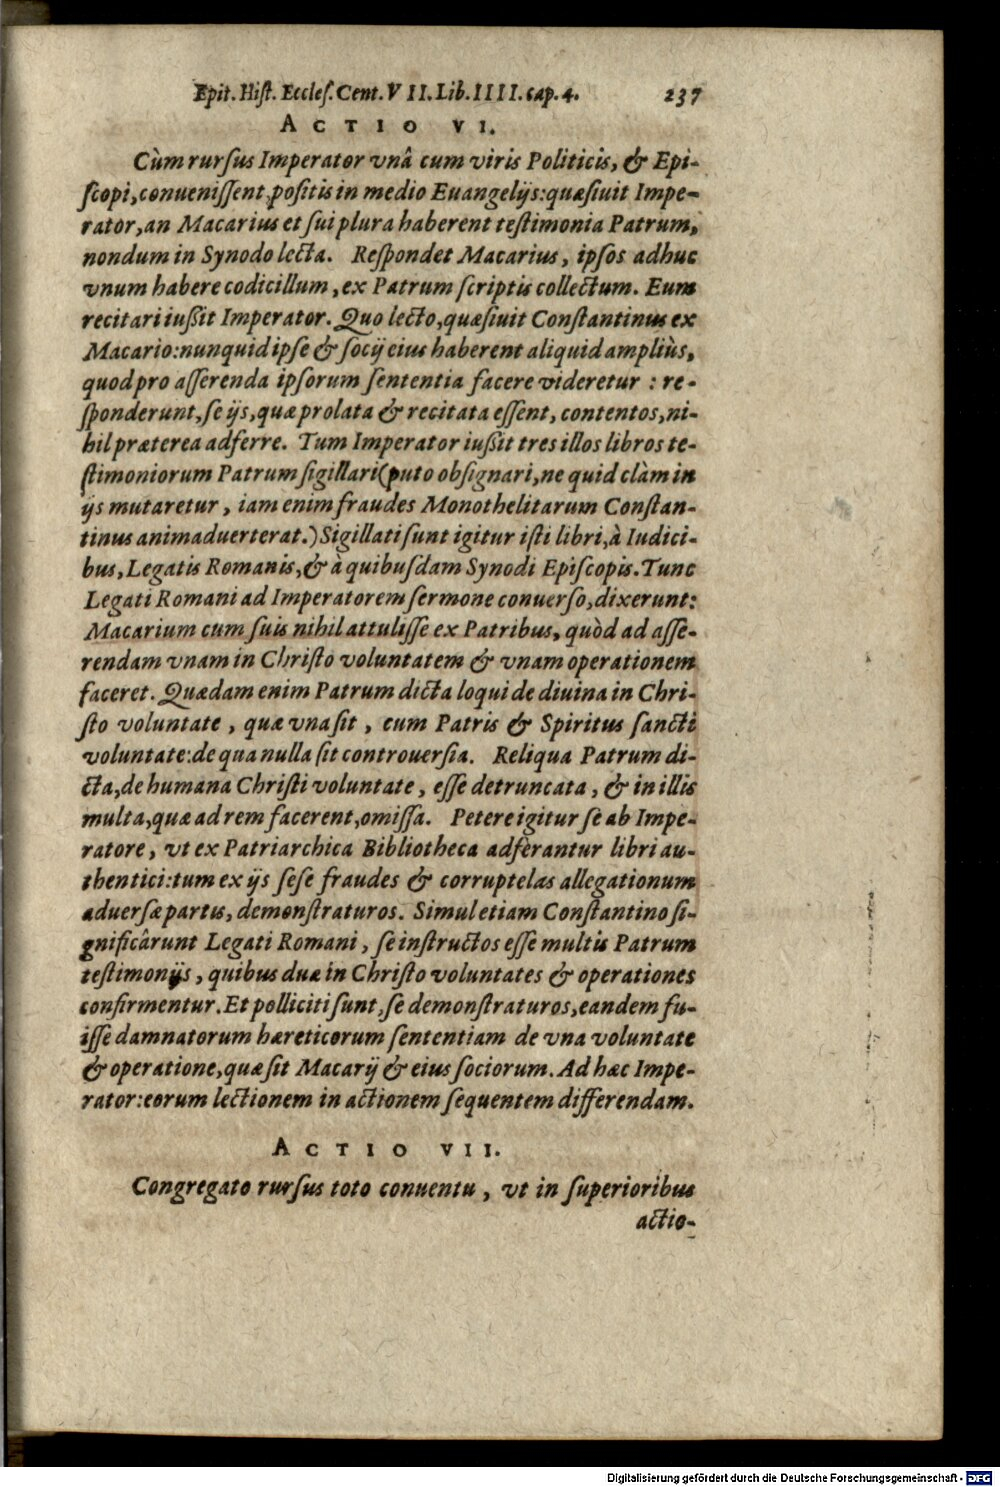 Epit. Hiſt. Eccleſ. Cent. VII. Lib. IIII. cap. 4. 237
ACTIO VI.
Cùm rurſus Imperator vnâ cum viris Politicis, & Epi-
ſcopi, conueniſſent, poſitis in medio Euangelijs: quæſiuit Impe-
rator, an Macarius et ſui plura haberent teſtimonia Patrum,
nondum in Synodo lecta. Reſpondet Macarius, ipſos adhuc
vnum habere codicillum, ex Patrum ſcriptis collectum. Eum
recitari iußit Imperator. Quo lecto, quæſiuit Conſtantinus ex
Macario: nunquid ipſe & ſocij eius haberent aliquid ampliùs,
quod pro aſſerenda ipſorum ſententia facere videretur : re-
ſponderunt, ſe ijs, quæ prolata & recitata eſſent, contentos, ni-
hil præterea adferre. Tum Imperator iußit tres illos libros te-
ſtimoniorum Patrum ſigillari (puto obſignari, ne quid clàm in
ijs mutaretur, iam enim fraudes Monothelitarum Conſtan-
tinus animaduerterat.) Sigillati ſunt igitur iſti libri, à Iudici-
bus, Legatis Romanis, & à quibuſdam Synodi Epiſcopis. Tunc
Legati Romani ad Imperatorem ſermone conuerſo, dixerunt:
Macarium cum ſuis nihil attuliſſe ex Patribus, quòd ad aſſe-
rendam vnam in Chriſto voluntatem & vnam operationem
faceret. Quædam enim Patrum dicta loqui de diuina in Chri-
ſto voluntate, quæ vna ſit, cum Patris & Spiritus ſancti
voluntate: de qua nulla ſit controuerſia. Reliqua Patrum di-
cta, de humana Chriſti voluntate, eſſe detruncata, & in illis
multa, quæ ad rem facerent, omiſſa. Petere igitur ſe ab Impe-
ratore, vt ex Patriarchica Bibliotheca adferantur libri au-
thentici: tum ex ijs ſeſe fraudes & corruptelas allegationum
aduerſæ partis, demonſtraturos. Simul etiam Conſtantino ſi-
gnificârunt Legati Romani, ſe inſtructos eſſe multis Patrum
teſtimonijs, quibus duæ in Chriſto voluntates & operationes
confirmentur. Et polliciti ſunt, ſe demonſtraturos, eandem fu-
iſſe damnatorum hæreticorum ſententiam de vna voluntate
& operatione, quæ ſit Macarij & eius ſociorum. Ad hæc Impe-
rator: eorum lectionem in actionem ſequentem differendam.
ACTIO VII.
Congregato rurſus toto conuentu, vt in ſuperioribus
actio-
Digitalisierung gefördert durch die Deutsche Forschungsgemeinschaft - DFG